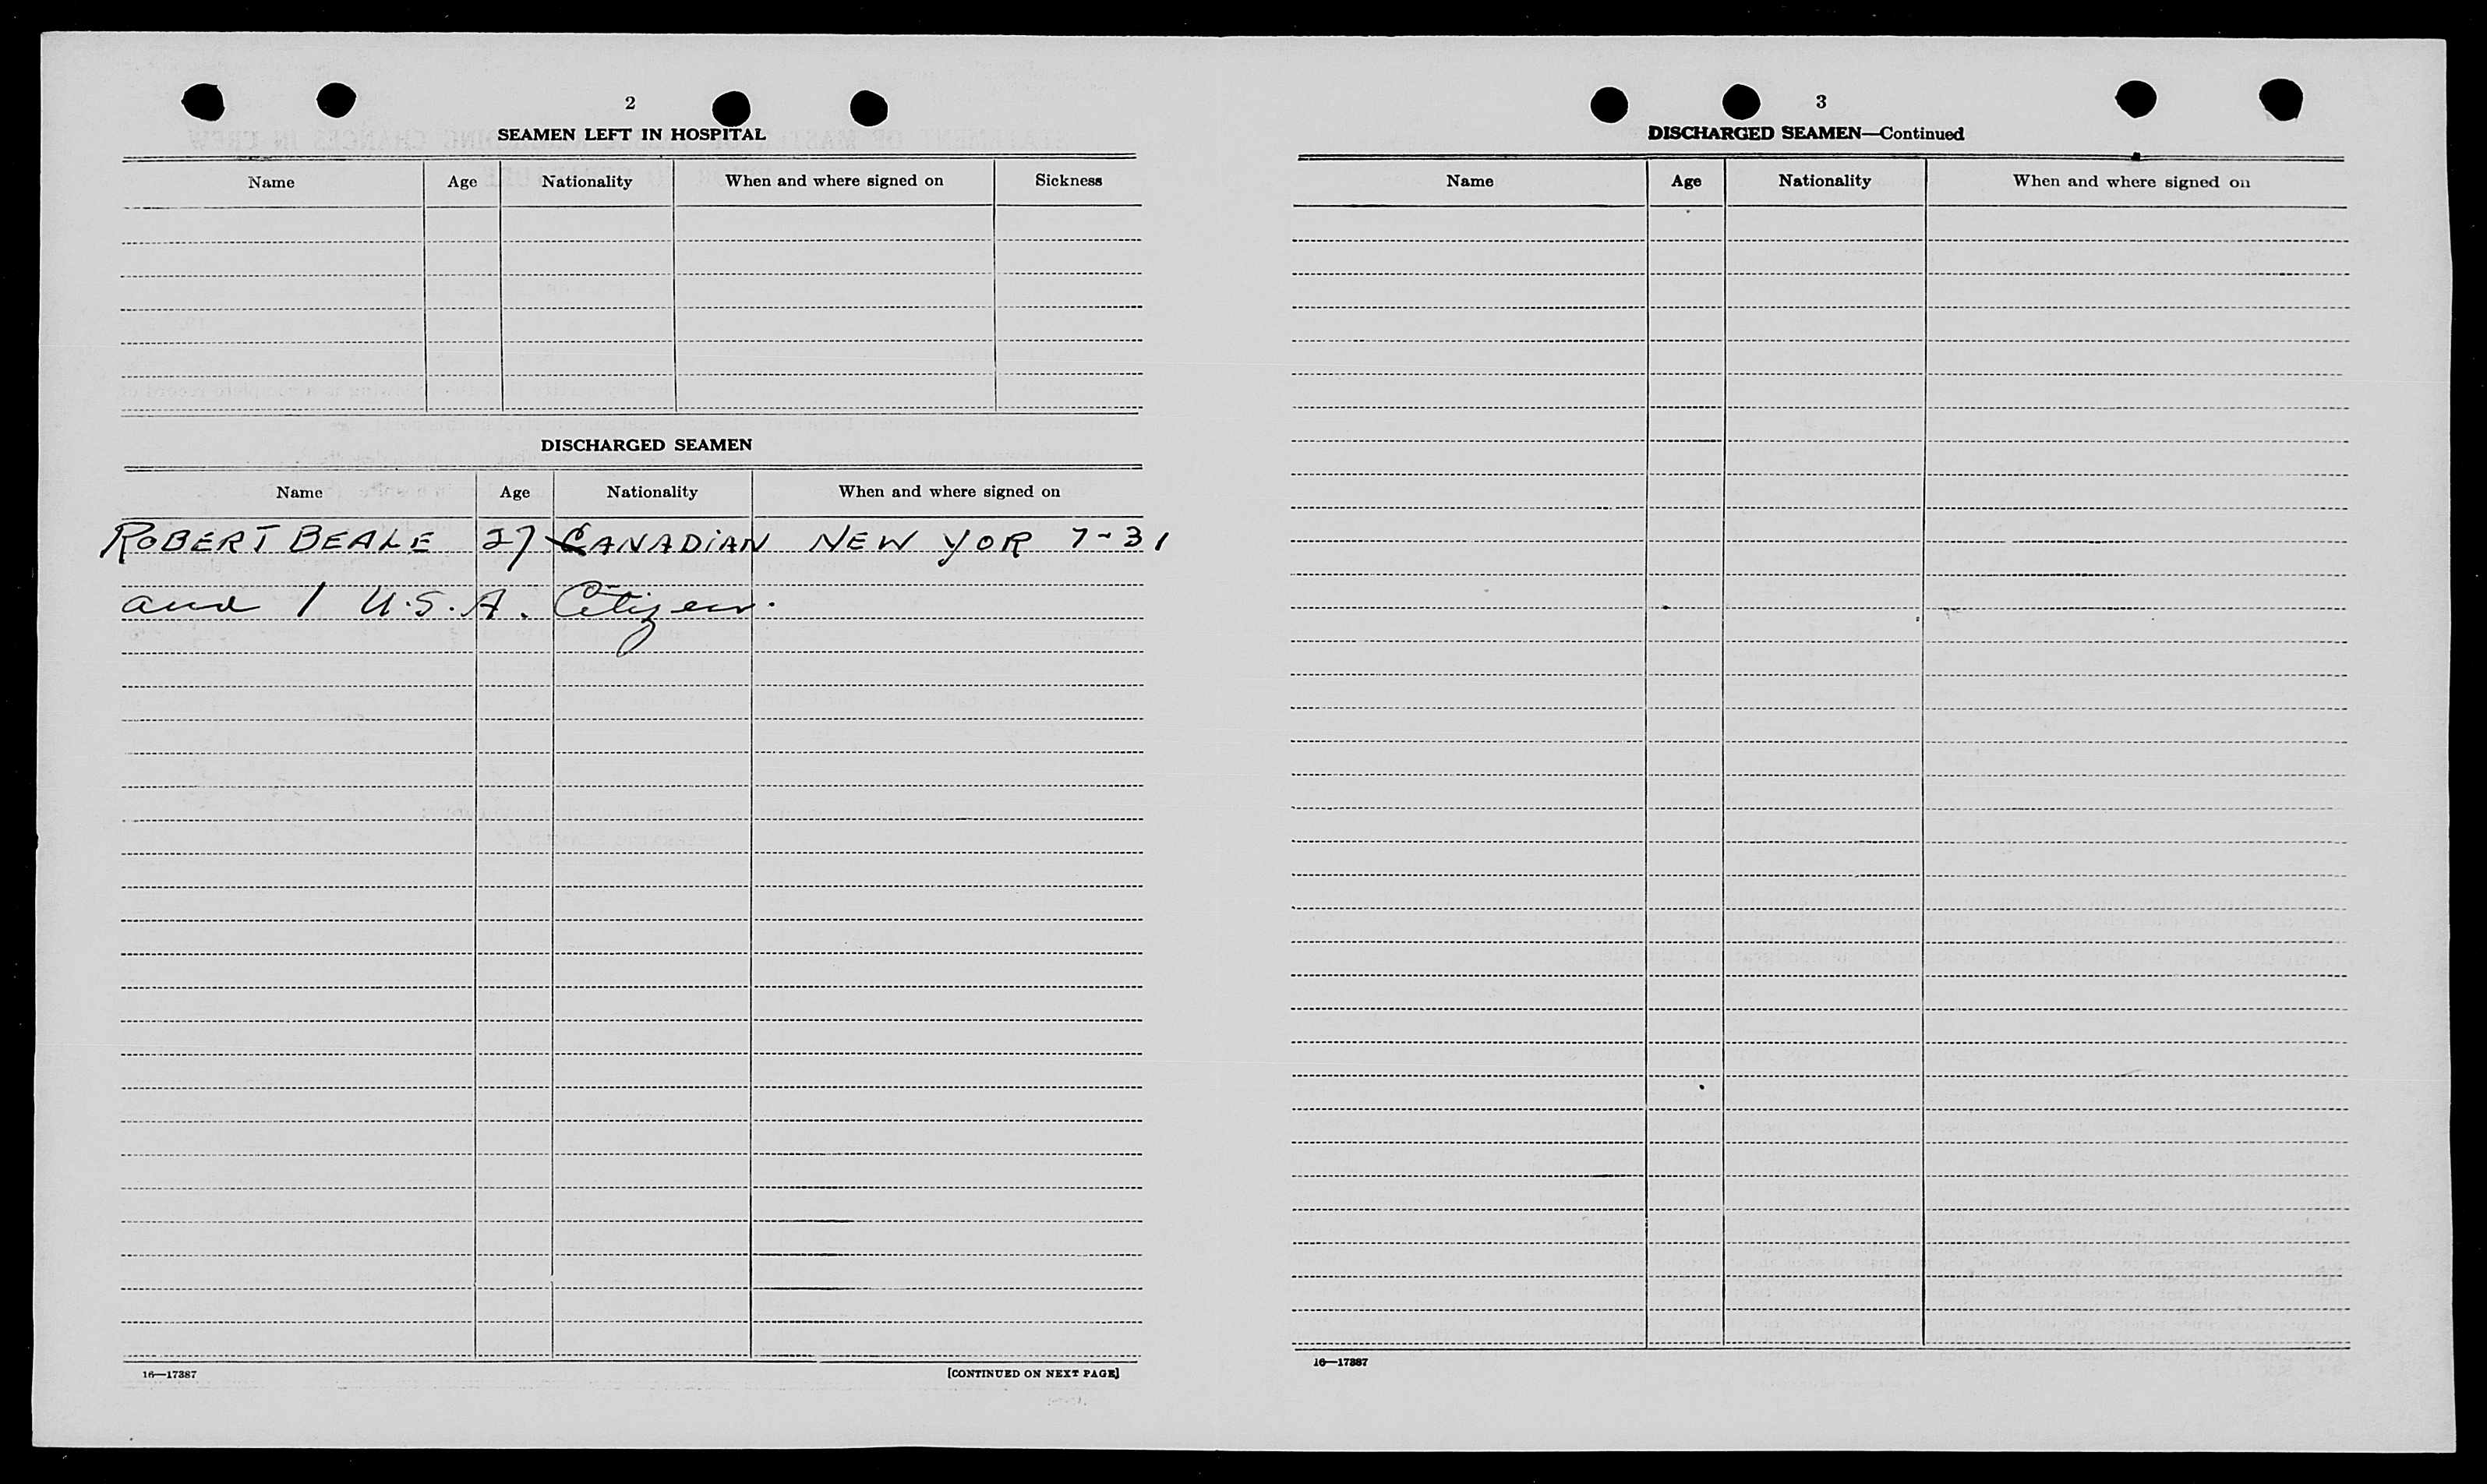 2
SEAMEN LEFT IN HOSPITAL
Name Age Nationality When and where signed on Sickness
DISCHARGED SEAMEN
Name Age Nationality When and where signed on
ROBERT BEALE 27 CANADIAN NEW YOR 7-31
and 1 U.S.A. Citizen.
16—17387
[CONTINUED ON NEXT PAGE]
3
DISCHARGED SEAMEN—Continued
Name Age Nationality When and where signed on
16—17387